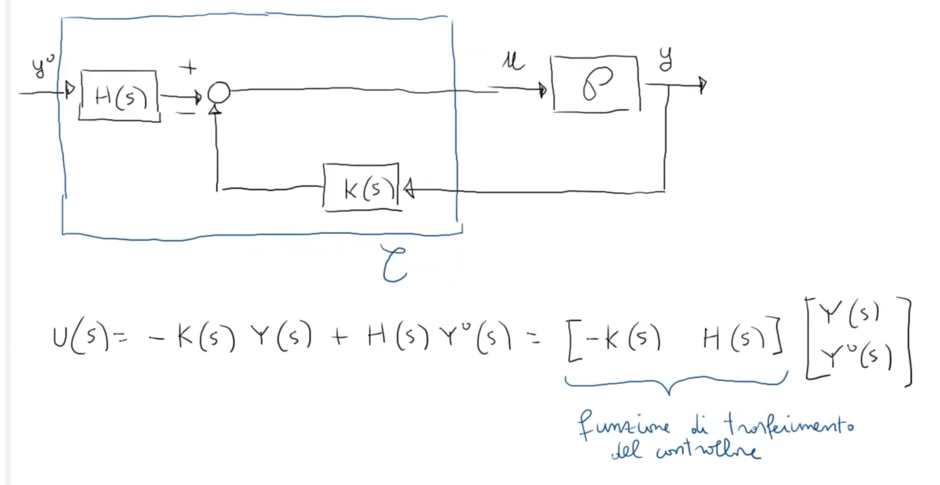 y° H(s) + − u P y
K(s)
C
U(s) = − K(s) Y(s) + H(s) Y°(s) = [−K(s) H(s)] [Y(s)
Y°(s)]
funzione di trasferimento
del controllore